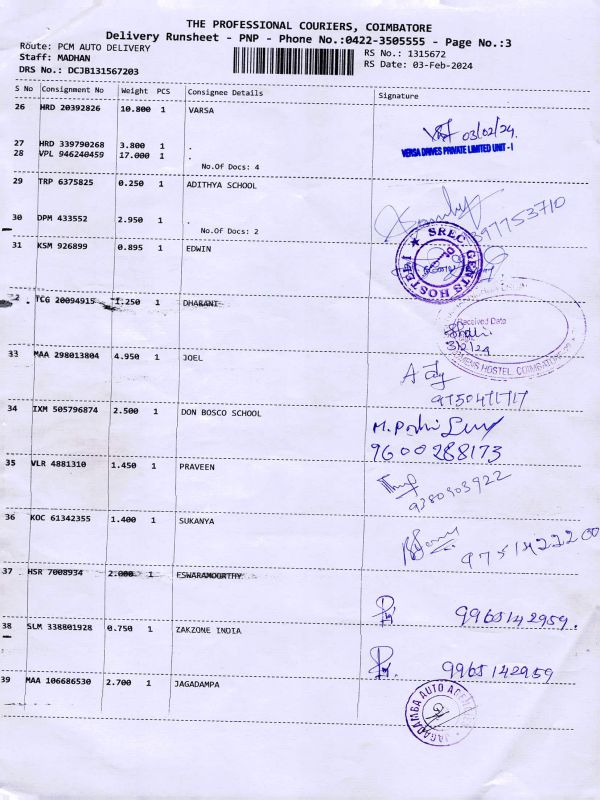 THE PROFESSIONAL COURIERS, COIMBATORE
Delivery Runsheet - PNP - Phone No.:0422-3505555 - Page No.:3
Route: PCM AUTO DELIVERY
RS No.: 1315672
Staff: MADHAN
RS Date: 03-Feb-2024
DRS No.: DCJB131567203
S No Consignment No Weight PCS Consignee Details Signature
26 HRD 20392826 10.800 1 VARSA
03/02/24
VERSA DRIVES PRIVATE LIMITED UNIT - I
27 HRD 339790268 3.800 1 .
28 VPL 946240459 17.000 1 .
No.Of Docs: 4
29 TRP 6375825 0.250 1 ADITHYA SCHOOL
30 DPM 433552 2.950 1 .
No.Of Docs: 2
31 KSM 926899 0.895 1 EDWIN
SREC GENTS HOSTEL I
TCG 20094915 1.250 1 DHARANI
Received Date
3/2/24
HOSTEL, COIMBATORE
33 MAA 298013804 4.950 1 JOEL
34 IXM 505796874 2.500 1 DON BOSCO SCHOOL
9600288173
35 VLR 4881310 1.450 1 PRAVEEN
9380903922
36 KOC 61342355 1.400 1 SUKANYA
37 HSR 7008934 2.000 1 ESWARAMOORTHY
9965142959.
38 SLM 338801928 0.750 1 ZAKZONE INDIA
9965142959
39 MAA 106686530 2.700 1 JAGADAMPA
JAGADAMBA AUTO